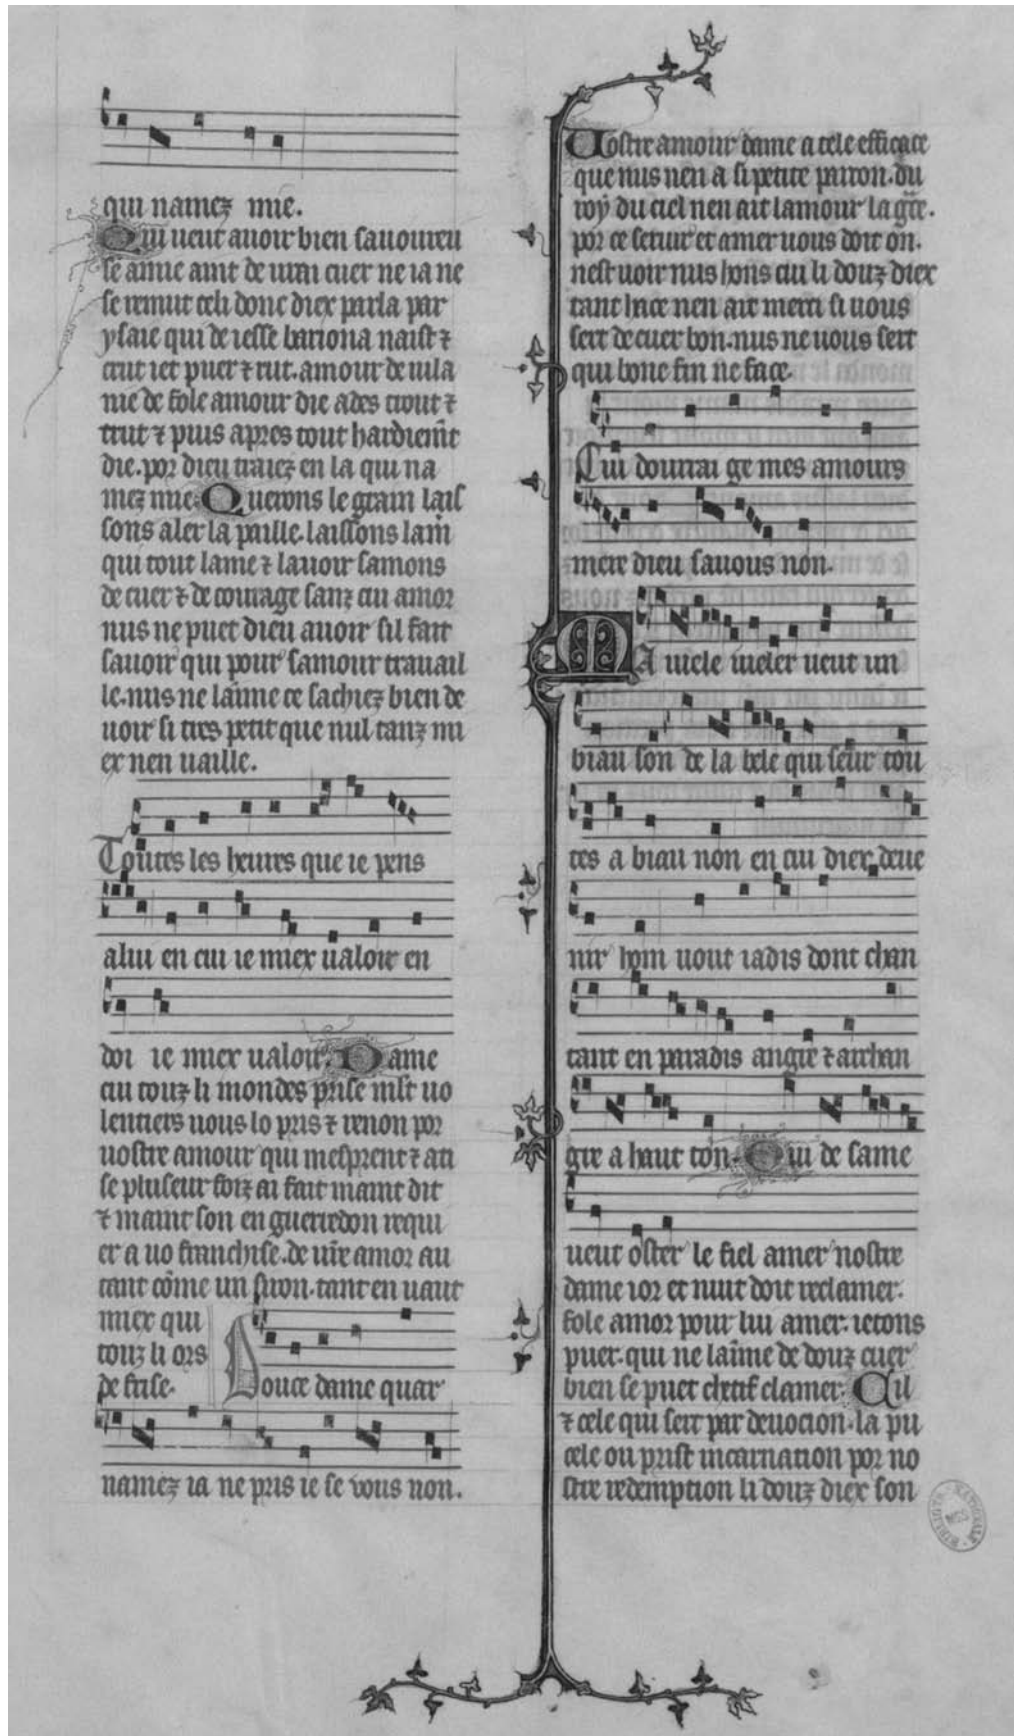 qui namez mie.
Qui ueut auoir bien sauoureu
se amie aint de urai cuer ne ia ne
se remut celi donc diex parla par
ysaie qui de iesse bariona naist ⁊
crut iet puer ⁊ rut. amour de uila
nie de fole amour die ades trout ⁊
trut ⁊ puis apres tout hardiemt
die. por dieu traiez en la qui na
mez mie. Querons le grain lais
sons aler la paille. laissons lam
qui tout lame ⁊ lauoir samons
de cuer ⁊ de courage sanz cui amor
nus ne puet dieu auoir sil fait
sauoir qui pour samour trauail
le. nus ne laime ce sachiez bien de
uoir si tres petit que nul tanz mi
ex nen uaille.
Toutes les heures que ie pens
alui en cui ie miex ualoir en
doi ie miex ualoir. Dame
cui touz li mondes prise mlt uo
lentiers uous lo pris ⁊ renon por
uostre amour qui mesprent ⁊ ati
se pluseur foiz ai fait maint dit
⁊ maint son en guerredon requi
er a uo franchise. de ure amor au
tant come un siron. tant en uaut
miex qui
touz li ors
de frise.
Douce dame quar
namez ia ne pris ie se vous non.
Uostre amour dame a cele efficace
que nus nen a si petite parron. du
roy du ciel nen ait lamour la gre.
por ce seruir et amer uous doit on.
nest uoir nus hons cui li douz diex
tant hace nen ait merci si uous
sert de cuer bon. nus ne uous sert
qui bone fin ne face.
Cui dourrai ge mes amours
mere dieu sauous non.
MA uiele uieler ueut un
biau son de la bele qui seur tou
tes a biau non en cui diex deue
nir hom uout iadis dont chan
tant en paradis angre ⁊ archan
gre a haut ton. Qui de same
ueut oster le fiel amer nostre
dame ior et nuit doit reclamer.
fole amor pour lui amer. ietons
puer. qui ne laime de douz cuer
bien se puet chetif clamer. Cil
⁊ cele qui sert par deuocion. la pu
cele ou prist incarnation por no
stre redemption li douz diex son